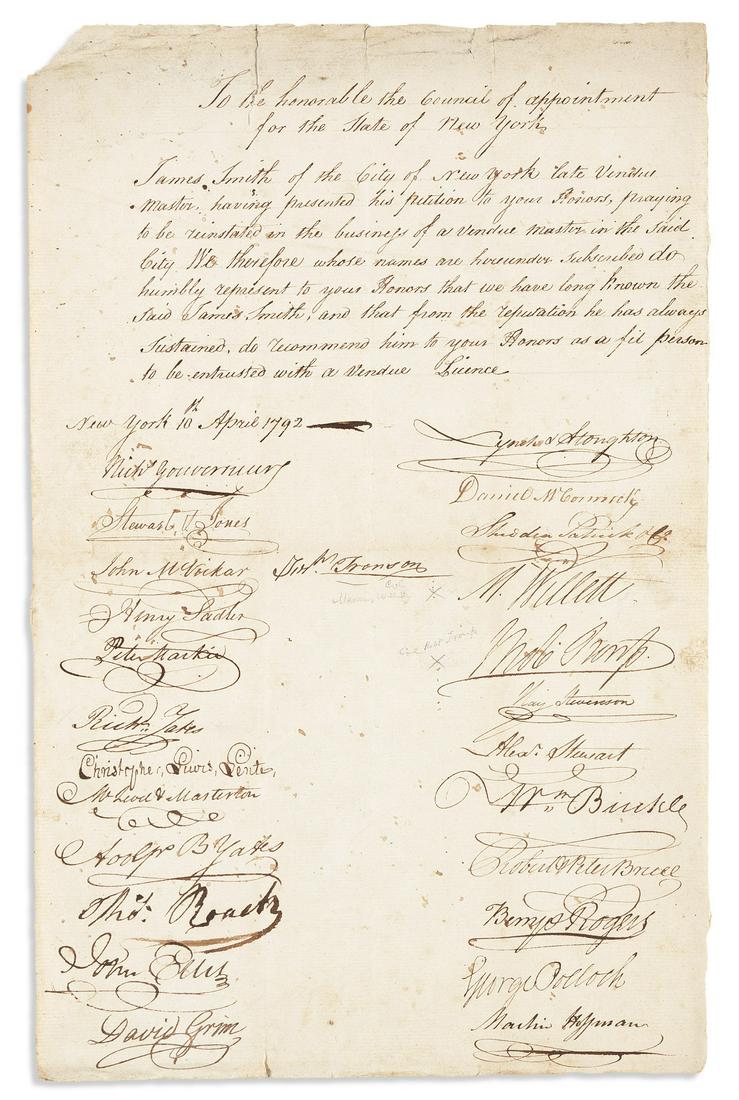 To the honorable the Council of appointment
for the State of New York,
James Smith of the City of New York late Vendue
Master, having presented his petition to your Honors, praying
to be reinstated in the business of a vendue master in the Said
City We therefore whose names are hereunder Subscribed do
humbly represent to your Honors that we have long known the
Said James Smith, and that from the reputation he has always
Sustained, do recommend him to your Honors as a fit person
to be entrusted with a Vendue Licence
New York 10th April 1792
Nichs Gouverneur
Stewart & Jones
John McVickar
Henry Sadler
Peter Mackie
Richd Yates
Christopher, Lewis, Lente,
McLeod & Masterton
Adolph B Yates
Thos. Roach
John Ellis
David Grim
Ironson
Lynch & Stoughton
Daniel McCormick
Patrick & Co
M. Willett
Stevenson
Alexr. Stewart
Wm
Robert & Peter Bruce
Berry & Rogers
George Pollock
Martin Hoffman